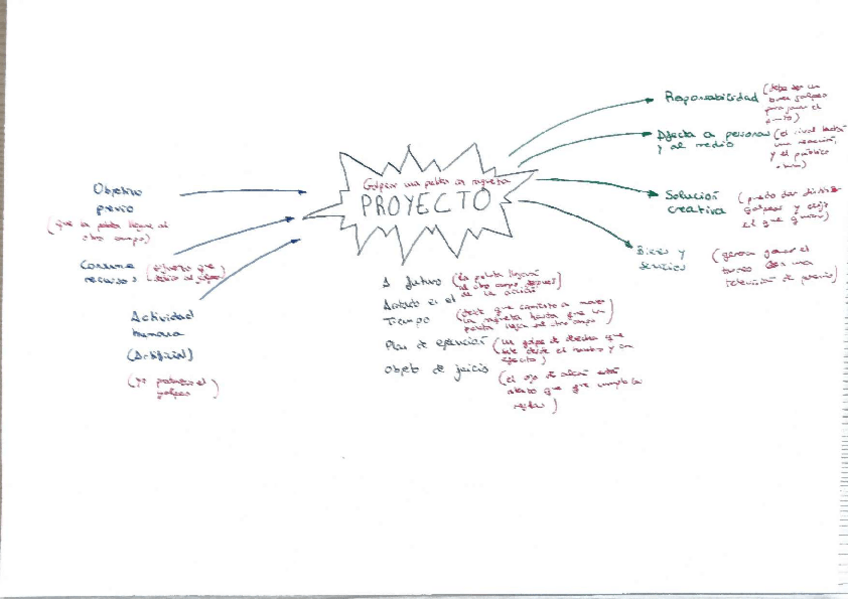 Golpear una pelota con raqueta
PROYECTO
Objetivo
previo
(que la pelota llegue al
otro campo)
Consume
recursos
(esfuerzo que
Actividad
humana
(Artificial)
(Yo produzco el
golpeo)
A futuro
(la pelota llegará
al otro campo después
de la acción)
Acotado en el
Tiempo
(desde que comienzo a mover
la raqueta hasta que la
pelota llega al otro campo)
Plan de ejecución
(un golpe de derecha que
sale desde el hombro y con
efecto)
Objeto de juicio
(el ojo de halcón estará
atento que cumpla las
reglas)
Responsabilidad
(debe ser un
buen golpeo
para ganar el
punto)
Afecta a personas
y al medio
(el rival tendrá
una reacción,
y el público
Solución
creativa
(puedo dar distintos
golpeos y elijo
el que quiero)
Bienes y
servicios
(genera ganar el
torneo
televisión de premio)